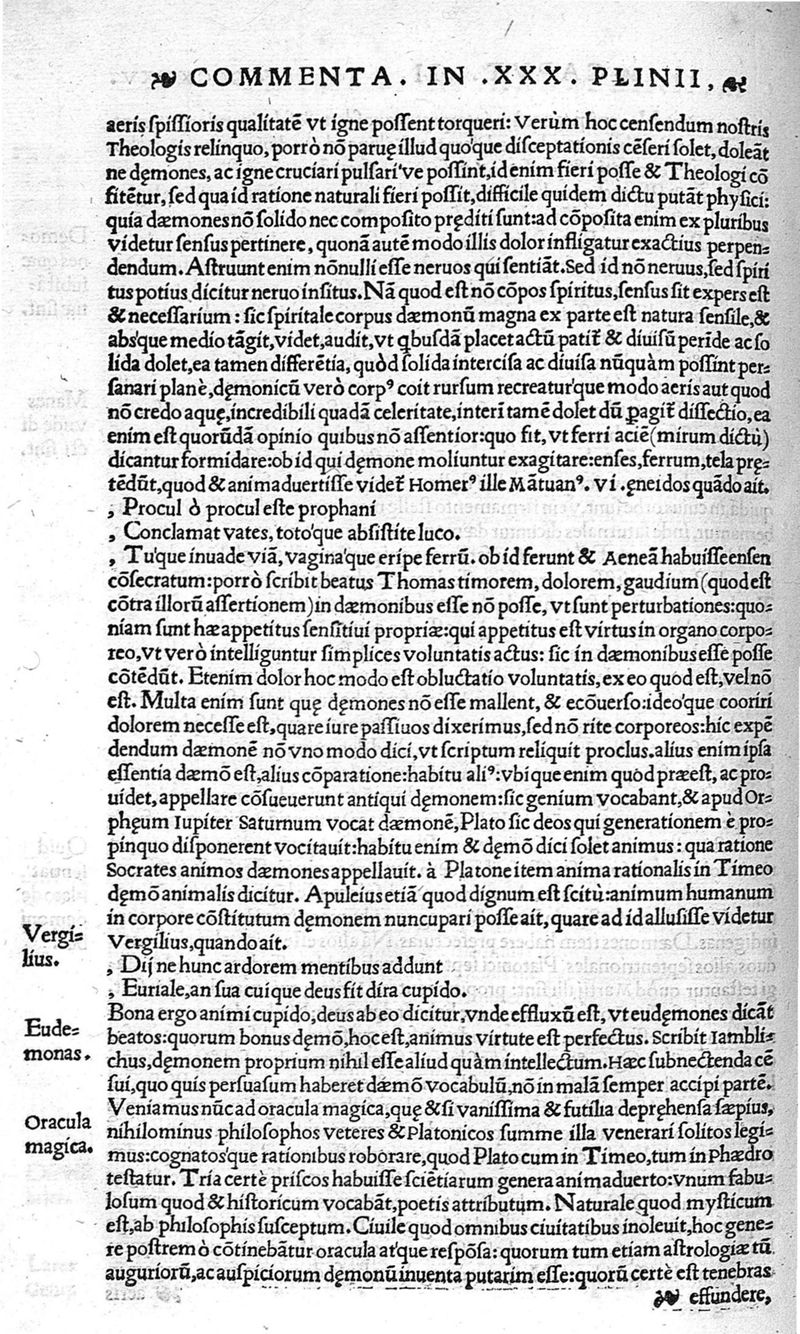 COMMENTA. IN .XXX. PLINII,
aeris spissioris qualitatē vt igne possent torqueri: Verùm hoc censendum nostris
Theologis relinquo, porrò nō paruę illud quo'que disceptationis cēseri solet, doleāt
ne dęmones, ac igne cruciari pulsari've possint, id enim fieri posse & Theologi cō
fitētur, sed qua id ratione naturali fieri possit, difficile quidem dictu putāt physici:
quia dæmones nō solido nec composito pręditi sunt: ad cōposita enim ex pluribus
videtur sensus pertinere, quonā autē modo illis dolor infligatur exactius perpen=
dendum. Astruunt enim nōnulli esse neruos qui sentiāt. Sed id nō neruus, sed spiri
tus potius dicitur neruo insitus. Nā quod est nō cōpos spiritus, sensus sit expers est
& necessarium: sic spiritale corpus dæmonū magna ex parte est natura sensile, &
abs'que medio tāgit, videt, audit, vt qbusdā placet actū patit᷑ & diuisū perīde ac so
lida dolet, ea tamen differētia, quòd solida intercisa ac diuisa nūquàm possint per=
sanari planè, dęmonicū verò corpꝰ coit rursum recreatur'que modo aeris aut quod
nō credo aquę, incredibili quadā celeritate, interī tamē dolet dū ꝑagit᷑ dissectio, ea
enim est quorūdā opinio quibus nō assentior: quo fit, vt ferri aciē (mirum dictù)
dicantur formidare: ob id qui dęmone moliuntur exagitare: enses, ferrum, tela prę=
tēdūt, quod & animaduertisse videt᷑ Homerꝰ ille Mātuanꝰ. vi. ęneidos quādo ait.
, Procul ò procul este prophani
, Conclamat vates, toto'que absistite luco.
, Tu'que inuade viā, vagina'que eripe ferrū. ob id ferunt & Aeneā habuisse ensen
cōsecratum: porrò scribit beatus Thomas timorem, dolorem, gaudium (quod est
cōtra illorū assertionem) in dæmonibus esse nō posse, vt sunt perturbationes: quo=
niam sunt hæ appetitus sensitiui propriæ: qui appetitus est virtus in organo corpo=
reo, vt verò intelliguntur simplices voluntatis actus: sic in dæmonibus esse posse
cōtēdūt. Etenim dolor hoc modo est obluctatio voluntatis, ex eo quod est, vel nō
est. Multa enim sunt quę dęmones nō esse mallent, & ecōuerso: ideo'que cooriri
dolorem necesse est, quare iure passiuos dixerimus, sed nō rite corporeos: hic expē
dendum dæmonē nō vno modo dici, vt scriptum reliquit proclus. alius enim ipsa
essentia dæmō est, alius cōparatione: habitu aliꝰ: vbi que enim quod præest, ac pro=
uidet, appellare cōsueuerunt antiqui dęmonem: sic genium vocabant, & apud Or=
phęum Iupiter Saturnum vocat dæmonē, Plato sic deos qui generationem è pro=
pinquo disponerent vocitauit: habitu enim & dęmō dici solet animus: qua ratione
Socrates animos dæmones appellauit. à Platone item anima rationalis in Timeo
dęmō animalis dicitur. Apuleius etiā quod dignum est scitù: animum humanum
in corpore cōstitutum dęmonem nuncupari posse ait, quare ad id allusisse videtur
Vergi=
lius.
Vergilius, quando ait.
, Dij ne hunc ardorem mentibus addunt
, Euriale, an sua cuique deus fit dira cupido.
Bona ergo animi cupido, deus ab eo dicitur, vnde effluxū est, vt eudęmones dicāt
Eude=
monas.
beatos: quorum bonus dęmō, hoc est, animus virtute est perfectus. Scribit Iambli=
chus, dęmonem proprium nihil esse aliud quàm intellectum. Hæc subnectenda cē
sui, quo quis persuasum haberet dæmō vocabulū, nō in malā semper accipi partē.
Oracula
magica.
Veniamus nūc ad oracula magica, quę & si vanissima & futilia depręhensa sæpius,
nihilominus philosophos veteres & Platonicos summe illa venerari solitos legi=
mus: cognatos'que rationibus roborare, quod Plato cum in Timeo, tum in Phædro
testatur. Tria certè priscos habuisse sciētiarum genera animaduerto: vnum fabu=
losum quod & historicum vocabāt, poetis attributum. Naturale quod mysticum
est, ab philosophis susceptum. Ciuile quod omnibus ciuitatibus inoleuit, hoc gene=
re postremò cōtinebātur oracula at'que respōsa: quorum tum etiam astrologiæ tū
auguriorū, ac auspiciorum dęmonū inuenta putarim esse: quorū certè est tenebras
effundere,